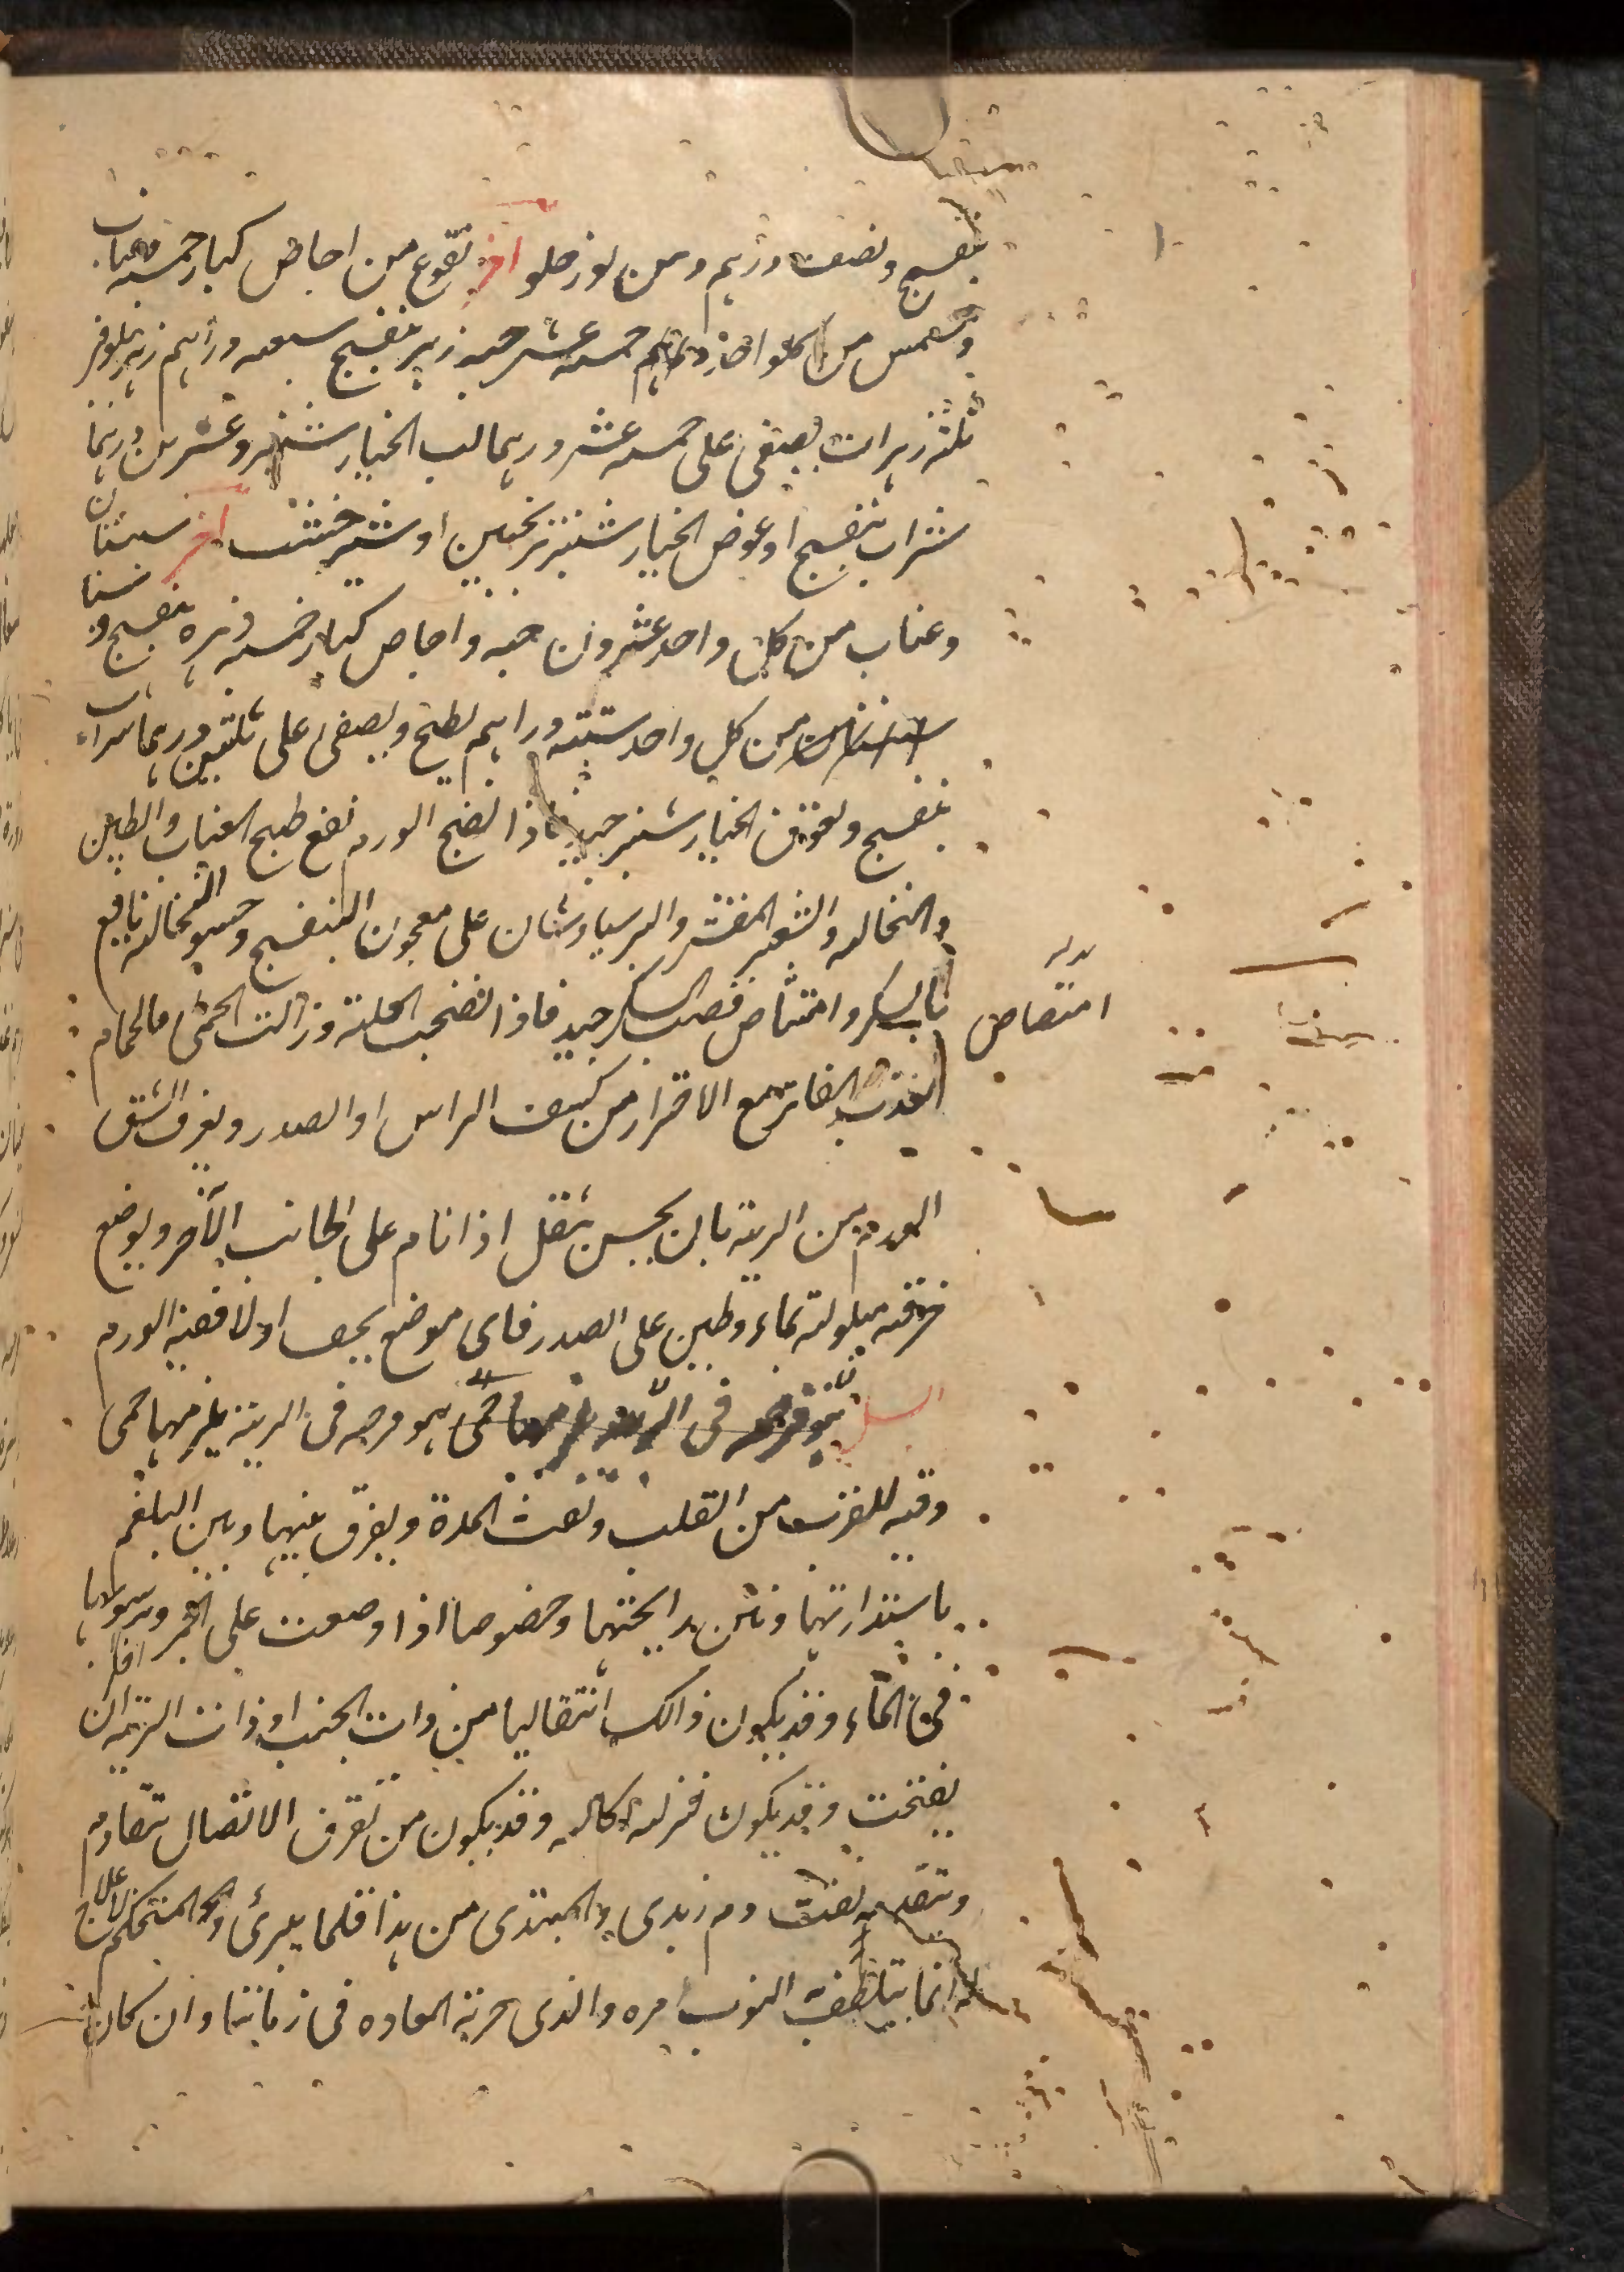 بنفسج ونصف درهم ومن لوز حلو اخر نقوع من اجاص كبار خمسة عناب
ومشمس من كلواحد خمسة عشر حبه زهر بنفسج سبعه دراهم زهر نيلوفر
ثلثه زهرات يصفى على خمسه عشر درهما لب الخيار شنبر وعشرين درهما
شراب بنفسج او عوض الخيار شنبر ترنجبين او شير خشت اخر سبستان
وعناب من كل واحد عشرون حبه واجاص كبار خمسه زهره بنفسج و سنا
من كل واحد ستة دراهم يطبخ ويصفى على ثلثين درهما شراب
بنفسج ولعوق الخيار شنبر جيد فاذا نضج الورم نفع طبيخ العناب والطين
والنخاله والشعير المقشر والبرسياوشان على معجون البنفسج وحسو النخاله نافع
بالسكر وامتصاص قصب السكر جيد فاذا نضجت العلة وزالت الحمى فالحمام
العذب الفاتر مع الاقرار من كشف الراس او الصدر ويعرف الشق
الورم من الرية بان يحس بثقل اذا نام على الجانب الآخر ويوضع
خرقه مبلولة بماء وطين على الصدر فاى موضع يجف اولا ففيه الورم
السل هو قرحه فى الرية يلزمها حمى هو قرحه فى الرية يلزمها حمى
دقيه للقرب من القلب ونفث المدة ويفرق بينهما وبين البلغم
باستدارتها ونتن رايحتها وخصوصا اذا وضعت على الجمر ورسوبها
فى الماء وقد يكون ذالك انتقاليا من ذات الجنب او ذات الرية ان
يفتحت وقد يكون فنزله اكاله وقد يكون من تفرق الاتصال تتقادم
وتتقدمه نفث دم زبدى والمبتدى من هذا قلما يبرئ والمستحكم لا علاج
له انما يتلطف النوب امره والذى جربة العاده فى زماننا وان كان
امتصاص